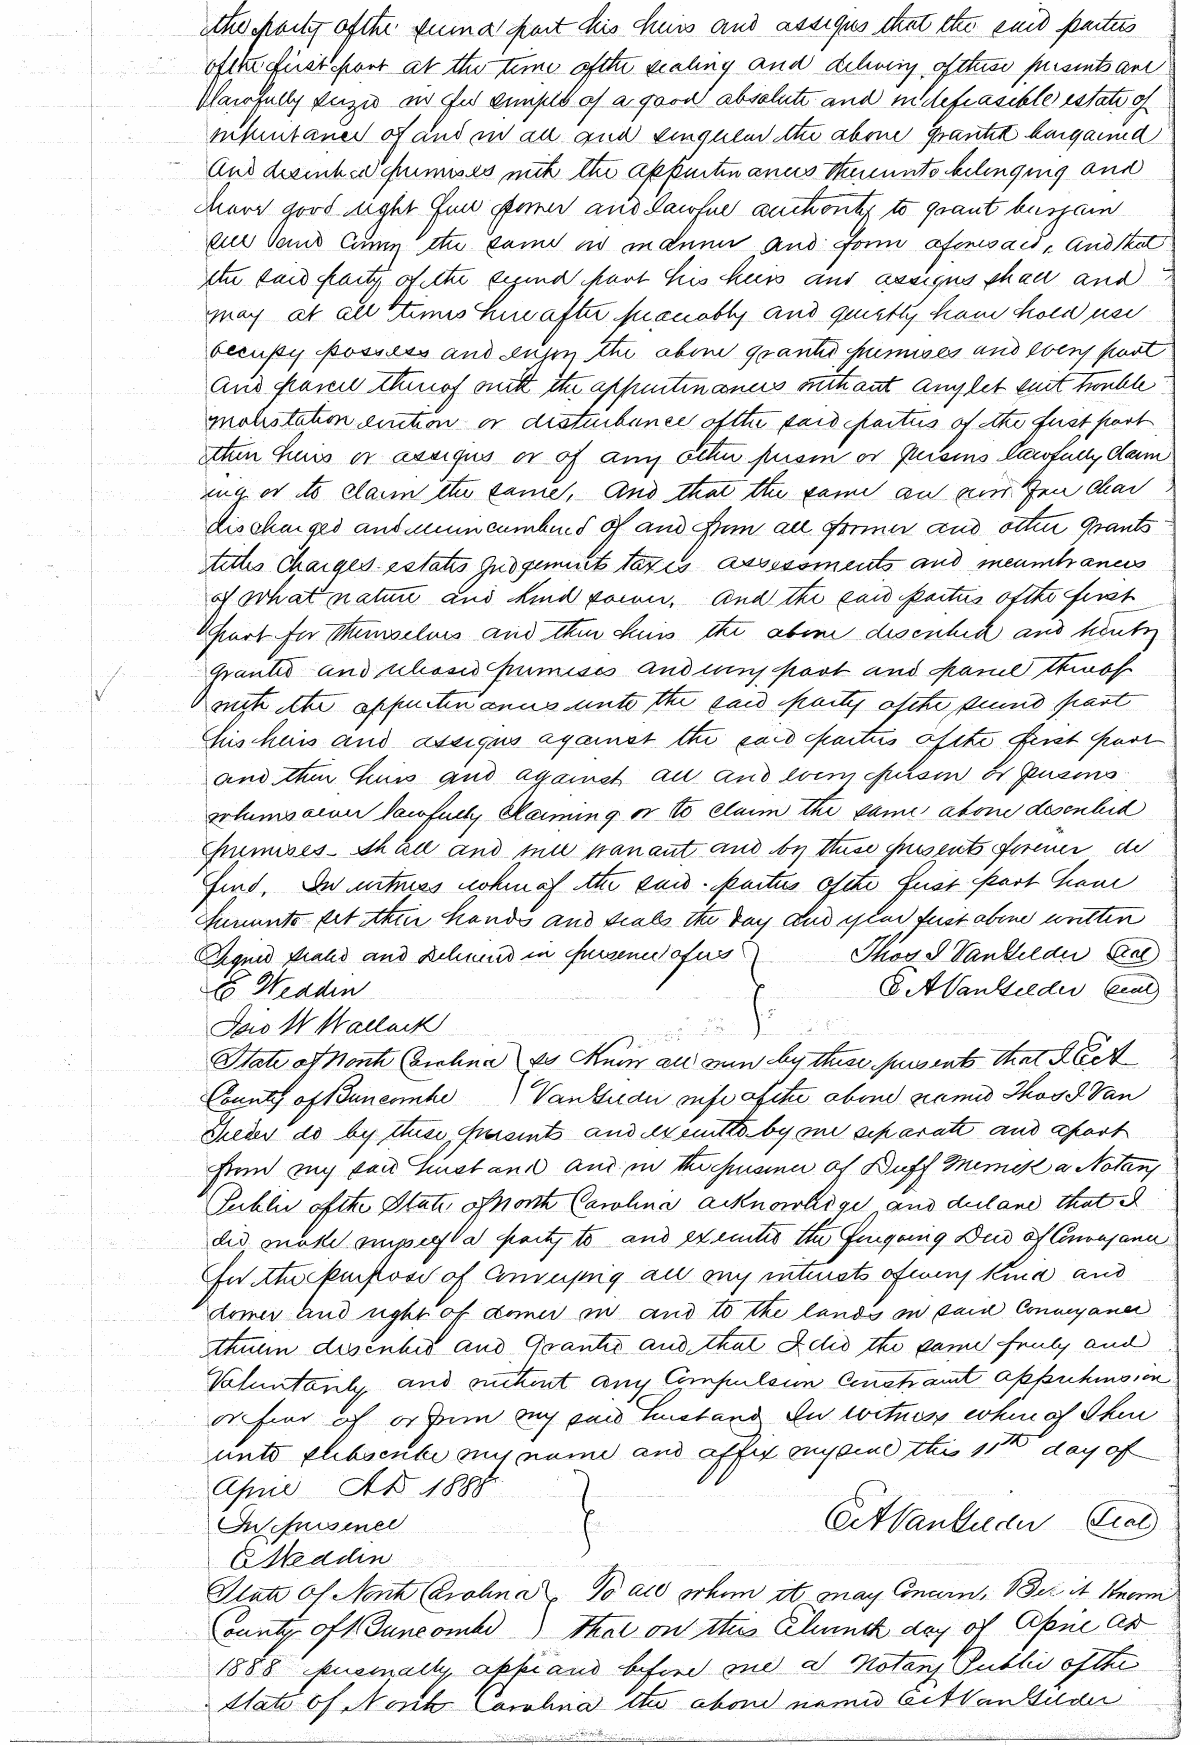 the party of the second part his heirs and assigns that the said parties
of the first part at the time of the sealing and delivery of these presents are
lawfully seized in fee simple of a good absolute and indefeasible estate of
inheritance of and in all and singular the above granted bargained
And described premises with the appurtenances thereunto belonging and
have good right full power and lawful authority to grant bargain
sell and Convey the same in manner and form aforesaid, And that
the said party of the second part his heirs and assigns shall and
may at all times hereafter peaceably and quietly have hold use
occupy possess and enjoy the above granted premises and every part
And parcel thereof with the appurtenances without any let suit trouble
molestation eviction or disturbance of the said parties of the first part
their heirs or assigns or of any other person or persons lawfully claim
ing or to claim the same, And that the same are now free clear
discharged and unincumbered of and from all former and other grants
titles Charges estates Judgements taxes assessments and incumbrances
of what nature and kind soever, And the said parties of the first
part for themselves and their heirs the above described and hereby
granted and released premises and every part and parcel thereof
with the appurtenances unto the said party of the second part
his heirs and assigns against the said parties of the first part
and their heirs and against all and every person or persons
whomsoever lawfully Claiming or to claim the same above described
premises shall and will warrant and by these presents forever de
fend, In witness whereof the said parties of the first part have
hereunto set their hands and seals the day and year first above written
Signed sealed and Delivered in presence of us Thos I VanGilder Seal
E Weddin E A VanGilder Seal
Jas W Wallack
State of North Carolina ss Know all men by these presents that I E A
County of Buncombe VanGilder wife of the above named Thos I Van
Gilder do by these presents and executed by me separate and apart
from my said husband and in the presence of Duff Merrick a Notary
Public of the State of North Carolina acknowledge and declare that I
did make myself a party to and executed the foregoing Deed of Conveyance
for the purpose of Conveying all my interests of every kind and
dower and right of dower in and to the lands in said Conveyance
therein described and Granted and that I did the same freely and
Voluntarily and without any Compulsion Constraint apprehension
or fear of or from my said husband In witness whereof I here
unto subscribe my name and affix my seal this 11th day of
April AD 1888
In presence E A VanGilder Seal
E Weddin
State of North Carolina To all whom it may Concern, Be it Known
County of Buncombe that on this Eleventh day of April AD
1888 personally appeared before me a Notary Public of the
state of North Carolina the above named E A VanGilder